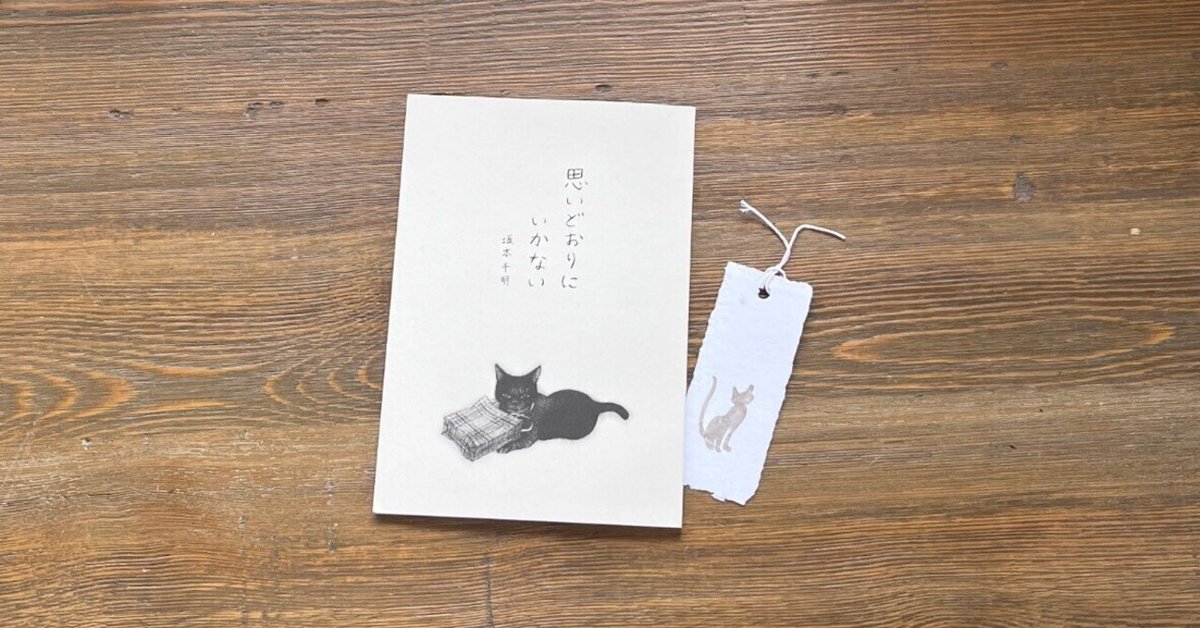 思いどおりに
いかない
坂本千明